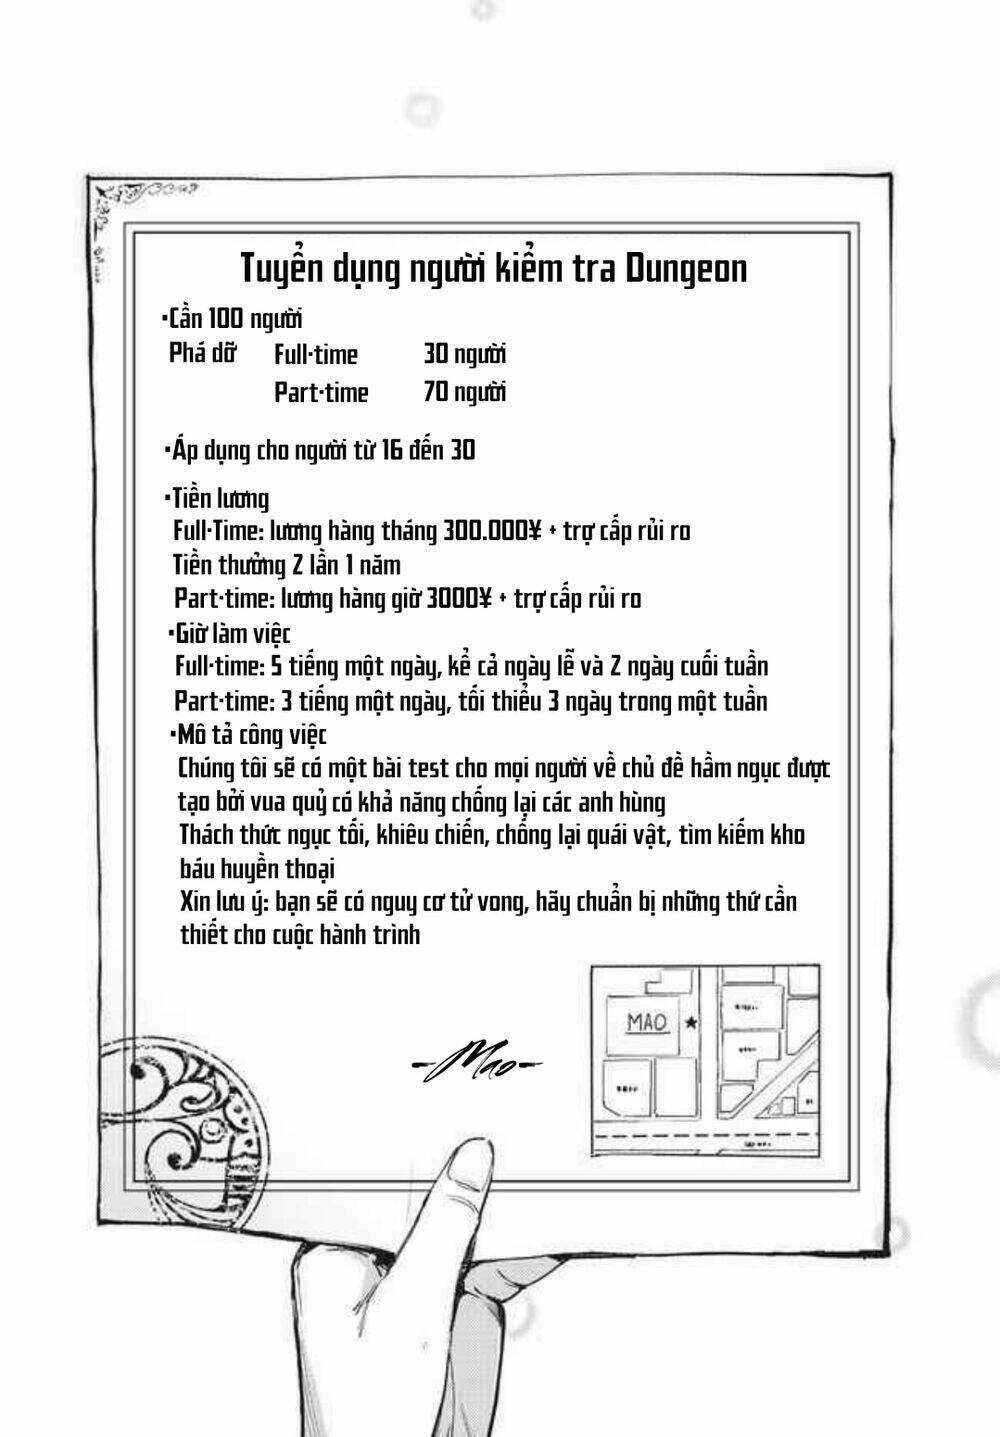 Tuyển dụng người kiểm tra Dungeon
•Cần 100 người
Phá dỡ Full-time 30 người
Part-time 70 người
•Áp dụng cho người từ 16 đến 30
•Tiền lương
Full-Time: lương hàng tháng 300.000¥ + trợ cấp rủi ro
Tiền thưởng 2 lần 1 năm
Part-time: lương hàng giờ 3000¥ + trợ cấp rủi ro
•Giờ làm việc
Full-time: 5 tiếng một ngày, kể cả ngày lễ và 2 ngày cuối tuần
Part-time: 3 tiếng một ngày, tối thiểu 3 ngày trong một tuần
•Mô tả công việc
Chúng tôi sẽ có một bài test cho mọi người về chủ đề hầm ngục được
tạo bởi vua quỷ có khả năng chống lại các anh hùng
Thách thức ngục tối, khiêu chiến, chống lại quái vật, tìm kiếm kho
báu huyền thoại
Xin lưu ý: bạn sẽ có nguy cơ tử vong, hãy chuẩn bị những thứ cần
thiết cho cuộc hành trình
MAO ★
-Mao-